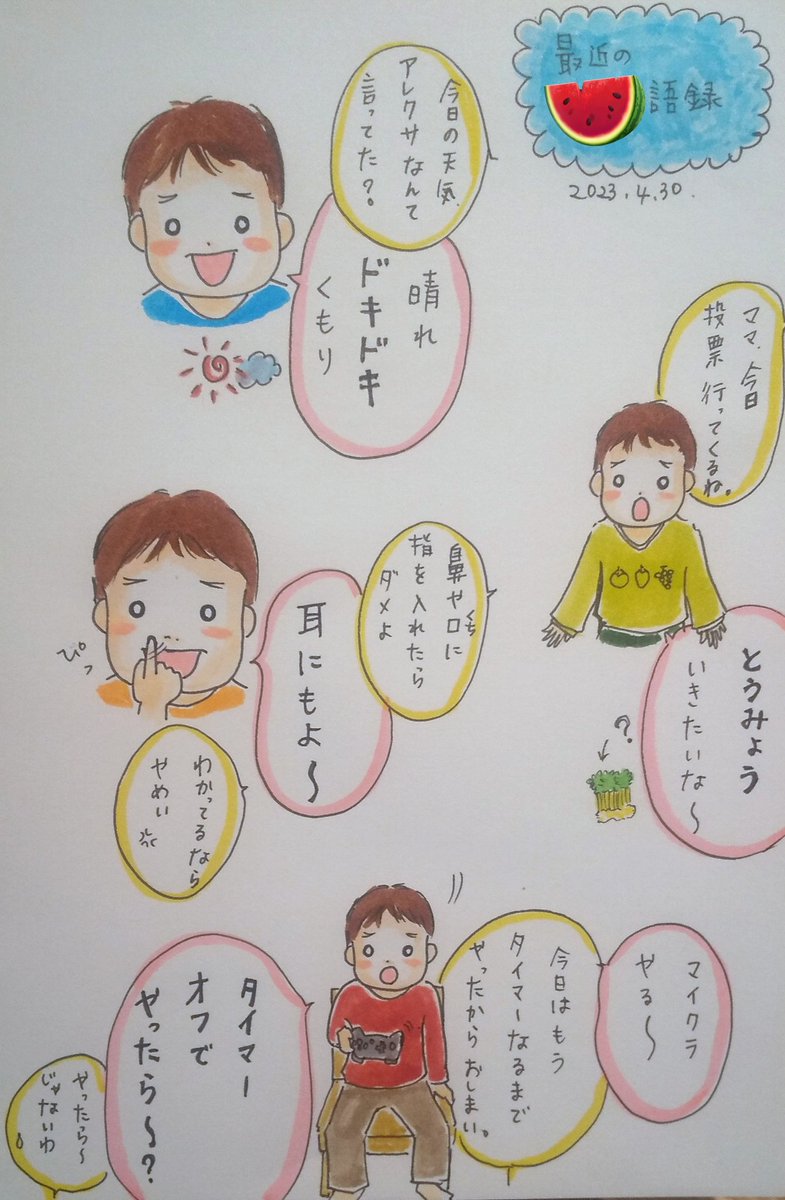 最近の
語録
2023.4.30.
今日の天気
アレクサなんて
言ってた？
晴れ
ドキドキ
くもり
ママ、今日
投票 行ってくるね。
とうみょう
いきたいな〜
?
鼻や口に
くち
指を入れたら
ダメよ
耳にもよ〜
ぴっ
わかってるなら
やめい
マイクラ
やる〜
今日はもう
タイマーなるまで
やったから おしまい。
タイマー
オフで
やったら〜？
やったら〜
じゃないわ